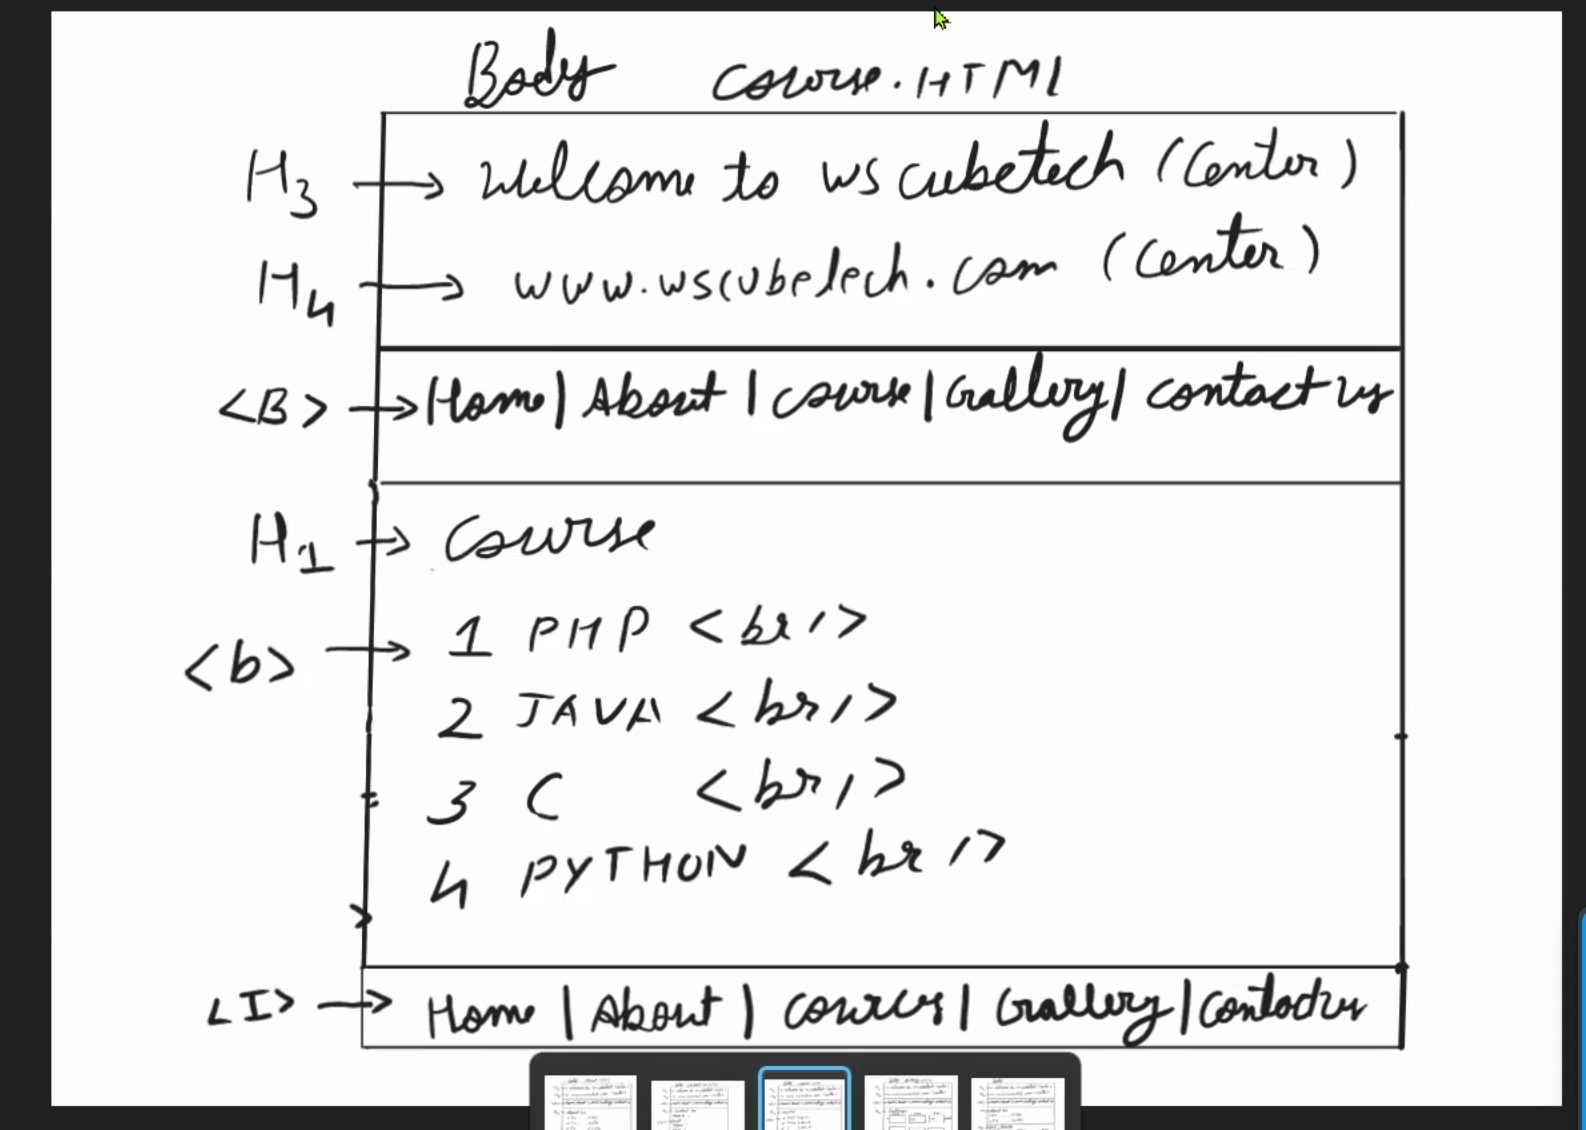 Body course.HTML
H3 → Welcome to wscubetech (Center)
H4 → www.wscubetech.com (Center)
<B> → Home | About | course | Gallery | contact us
H1 → Course
<b> → 1 PHP <br/>
2 JAVA <br/>
3 C <br/>
4 PYTHON <br/>
<I> → Home | About | courses | Gallery | Contact us